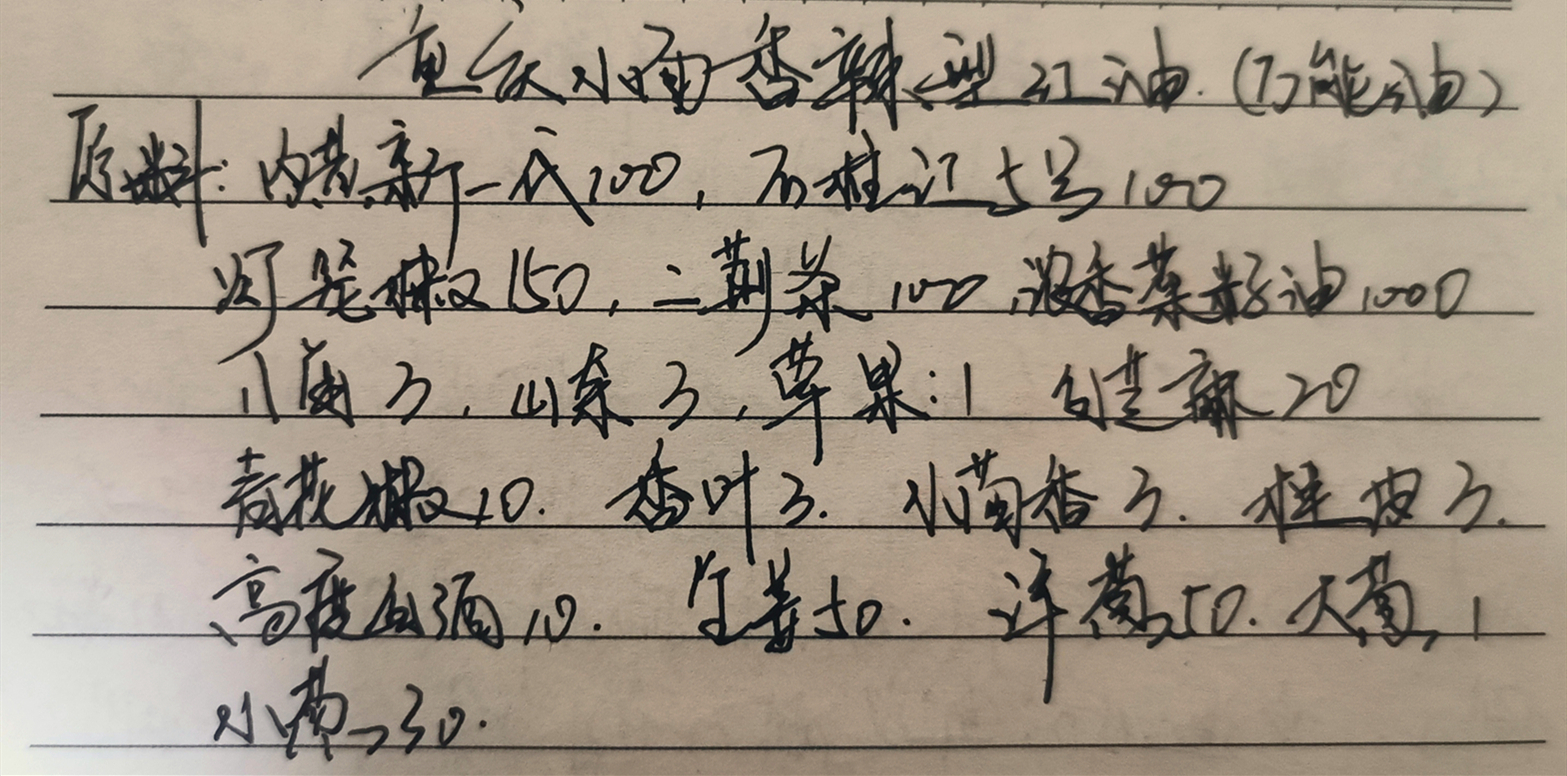 重庆小面香辣型红油.(万能油)
原料:内黄新一代100,石柱红5号100
灯笼椒150,二荆条100,浓香菜籽油1000
八角3,山奈3,草果:1 白芝麻20
青花椒10. 香叶3. 小茴香3. 桂皮3.
高度白酒10. 生姜50. 洋葱50.大葱1
小葱30.